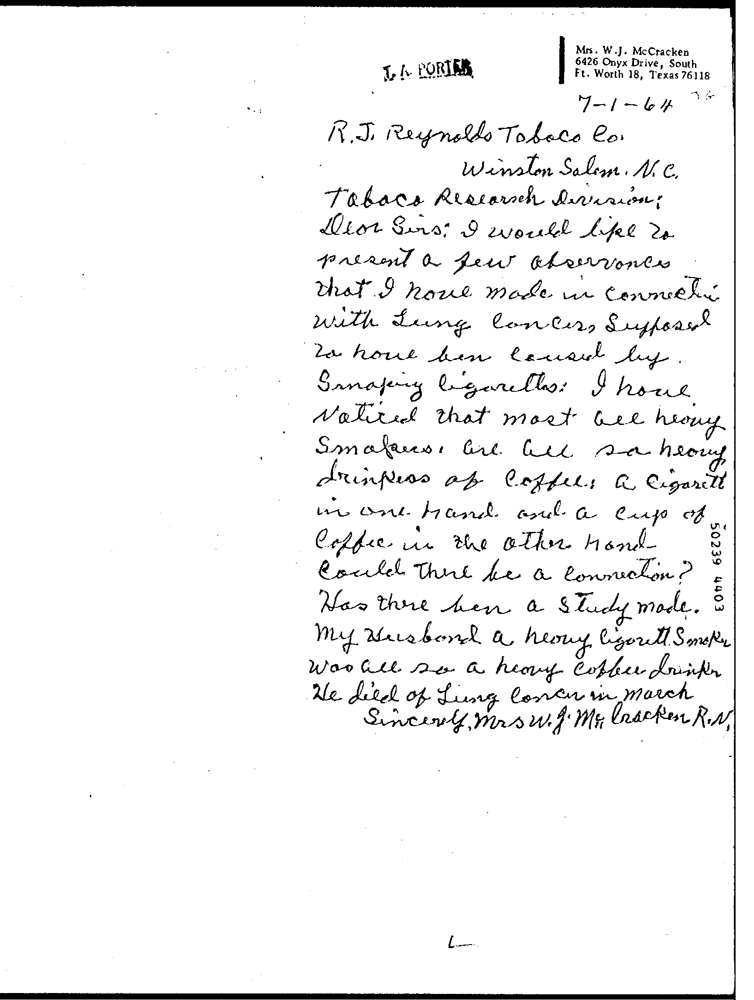 Mrs. W.J. McCracken
6426 Onyx Drive, South
Ft. Worth 18, Texas 76118
PORTER
7-1-64
R.J. Reynolds Tobaco Co.
Winston Salem. N.C.
Tobaco Research Division;
Dear Sirs: I would like to
present a few observances
that I have made in connecti
with Lung Cancers, Supposed
to have ben caused by
Smoking Cigaretts: I have
Noticed that most all heavy
Smokers. are all so heavy
drinkers of Coffee; a Cigarett
in one hand and a cup of
Coffee in the other hand
Could there be a connection?
Has there ben a Study made.
My Husband a heavy Cigarett Smoker
was all so a heavy coffee drinker
He died of Lung Cancer in March
Sincerely, Mrs W.J. McCracken R.N.
50239 4403